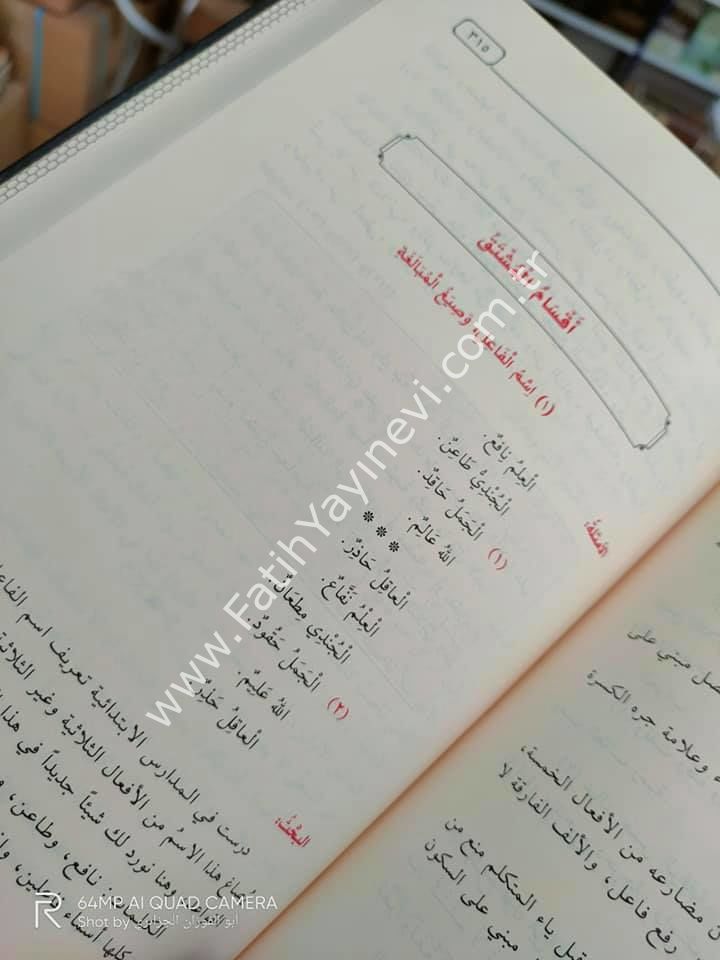 ٣١٥
أَقْسَامُ الْمُشْتَقِّ
(١) اِسْمُ الْفَاعِلِ وَصِيَغُ الْمُبَالَغَةِ
الأمثلة:
الْعِلْمُ نَافِعٌ.
الْجُنْدِيُّ طَاعِنٌ.
(١) الْجَمَلُ حَاقِدٌ.
اللهُ عَالِمٌ.
الْعَاقِلُ حَاذِرٌ.
***
الْعِلْمُ نَفَّاعٌ.
الْجُنْدِي مِطْعَانٌ.
(٢) الْجَمَلُ حَقُودٌ.
اللهُ عَلِيمٌ.
الْعَاقِلُ حَذِرٌ.
البحث:
درست في المدارس الابتدائية تعريف اسم
هذا الاسمُ من الأفعال الثلاثية وغير
وهنا نورد لك شيئاً جديداً في هذا
نافع، وطاعن،
كلها أسماء
مبني على
وعلامة جره الكسرة
مضارعه من الأفعال الخمسة،
رفع فاعل، والألف الفارقة لا
ياء المتكلم منع من
مبني على السكون
www.FatihYayinevi.com.tr
64MP AI QUAD CAMERA
Shot by أبو الفوزان